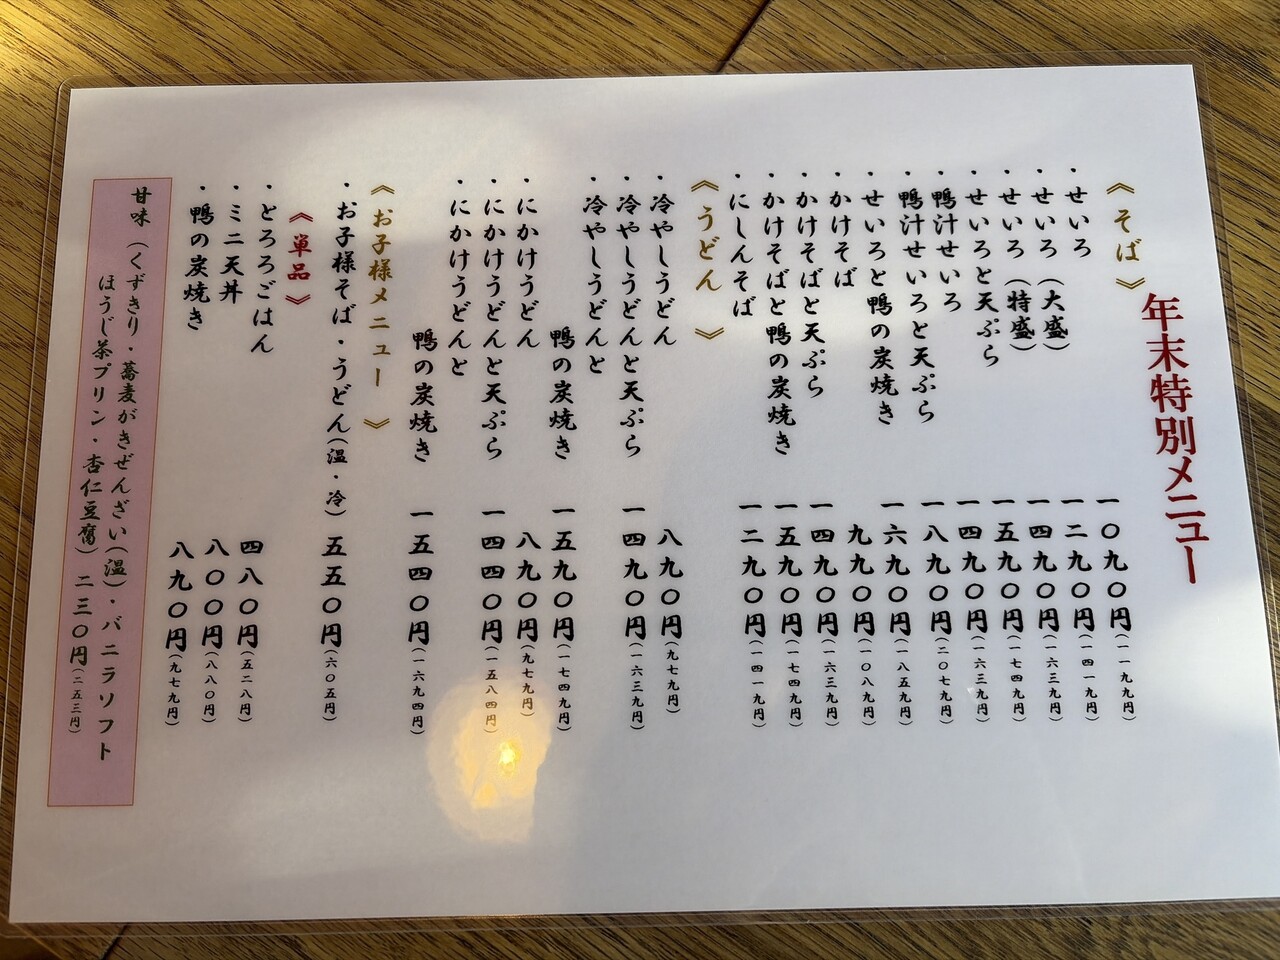 年末特別メニュー
《そば》
・せいろ 一〇九〇円(一一九九円)
・せいろ(大盛) 一二九〇円(一四一九円)
・せいろ(特盛) 一四九〇円(一六三九円)
・せいろと天ぷら 一五九〇円(一七四九円)
・鴨汁せいろ 一四九〇円(一六三九円)
・鴨汁せいろと天ぷら 一八九〇円(二〇七九円)
・せいろと鴨の炭焼き 一六九〇円(一八五九円)
・かけそば 九九〇円(一〇八九円)
・かけそばと天ぷら 一四九〇円(一六三九円)
・かけそばと鴨の炭焼き 一五九〇円(一七四九円)
・にしんそば 一二九〇円(一四一九円)
《うどん》
・冷やしうどん 八九〇円(九七九円)
・冷やしうどんと天ぷら 一四九〇円(一六三九円)
・冷やしうどんと
鴨の炭焼き 一五九〇円(一七四九円)
・にかけうどん 八九〇円(九七九円)
・にかけうどんと天ぷら 一四四〇円(一五八四円)
・にかけうどんと
鴨の炭焼き 一五四〇円(一六九四円)
《お子様メニュー》
・お子様そば・うどん(温・冷) 五五〇円(六〇五円)
《単品》
・とろろごはん 四八〇円(五二八円)
・ミニ天丼 八〇〇円(八八〇円)
・鴨の炭焼き 八九〇円(九七九円)
甘味(くずきり・蕎麦がきぜんざい(温)・バニラソフト
ほうじ茶プリン・杏仁豆腐) 二三〇円(二五三円)